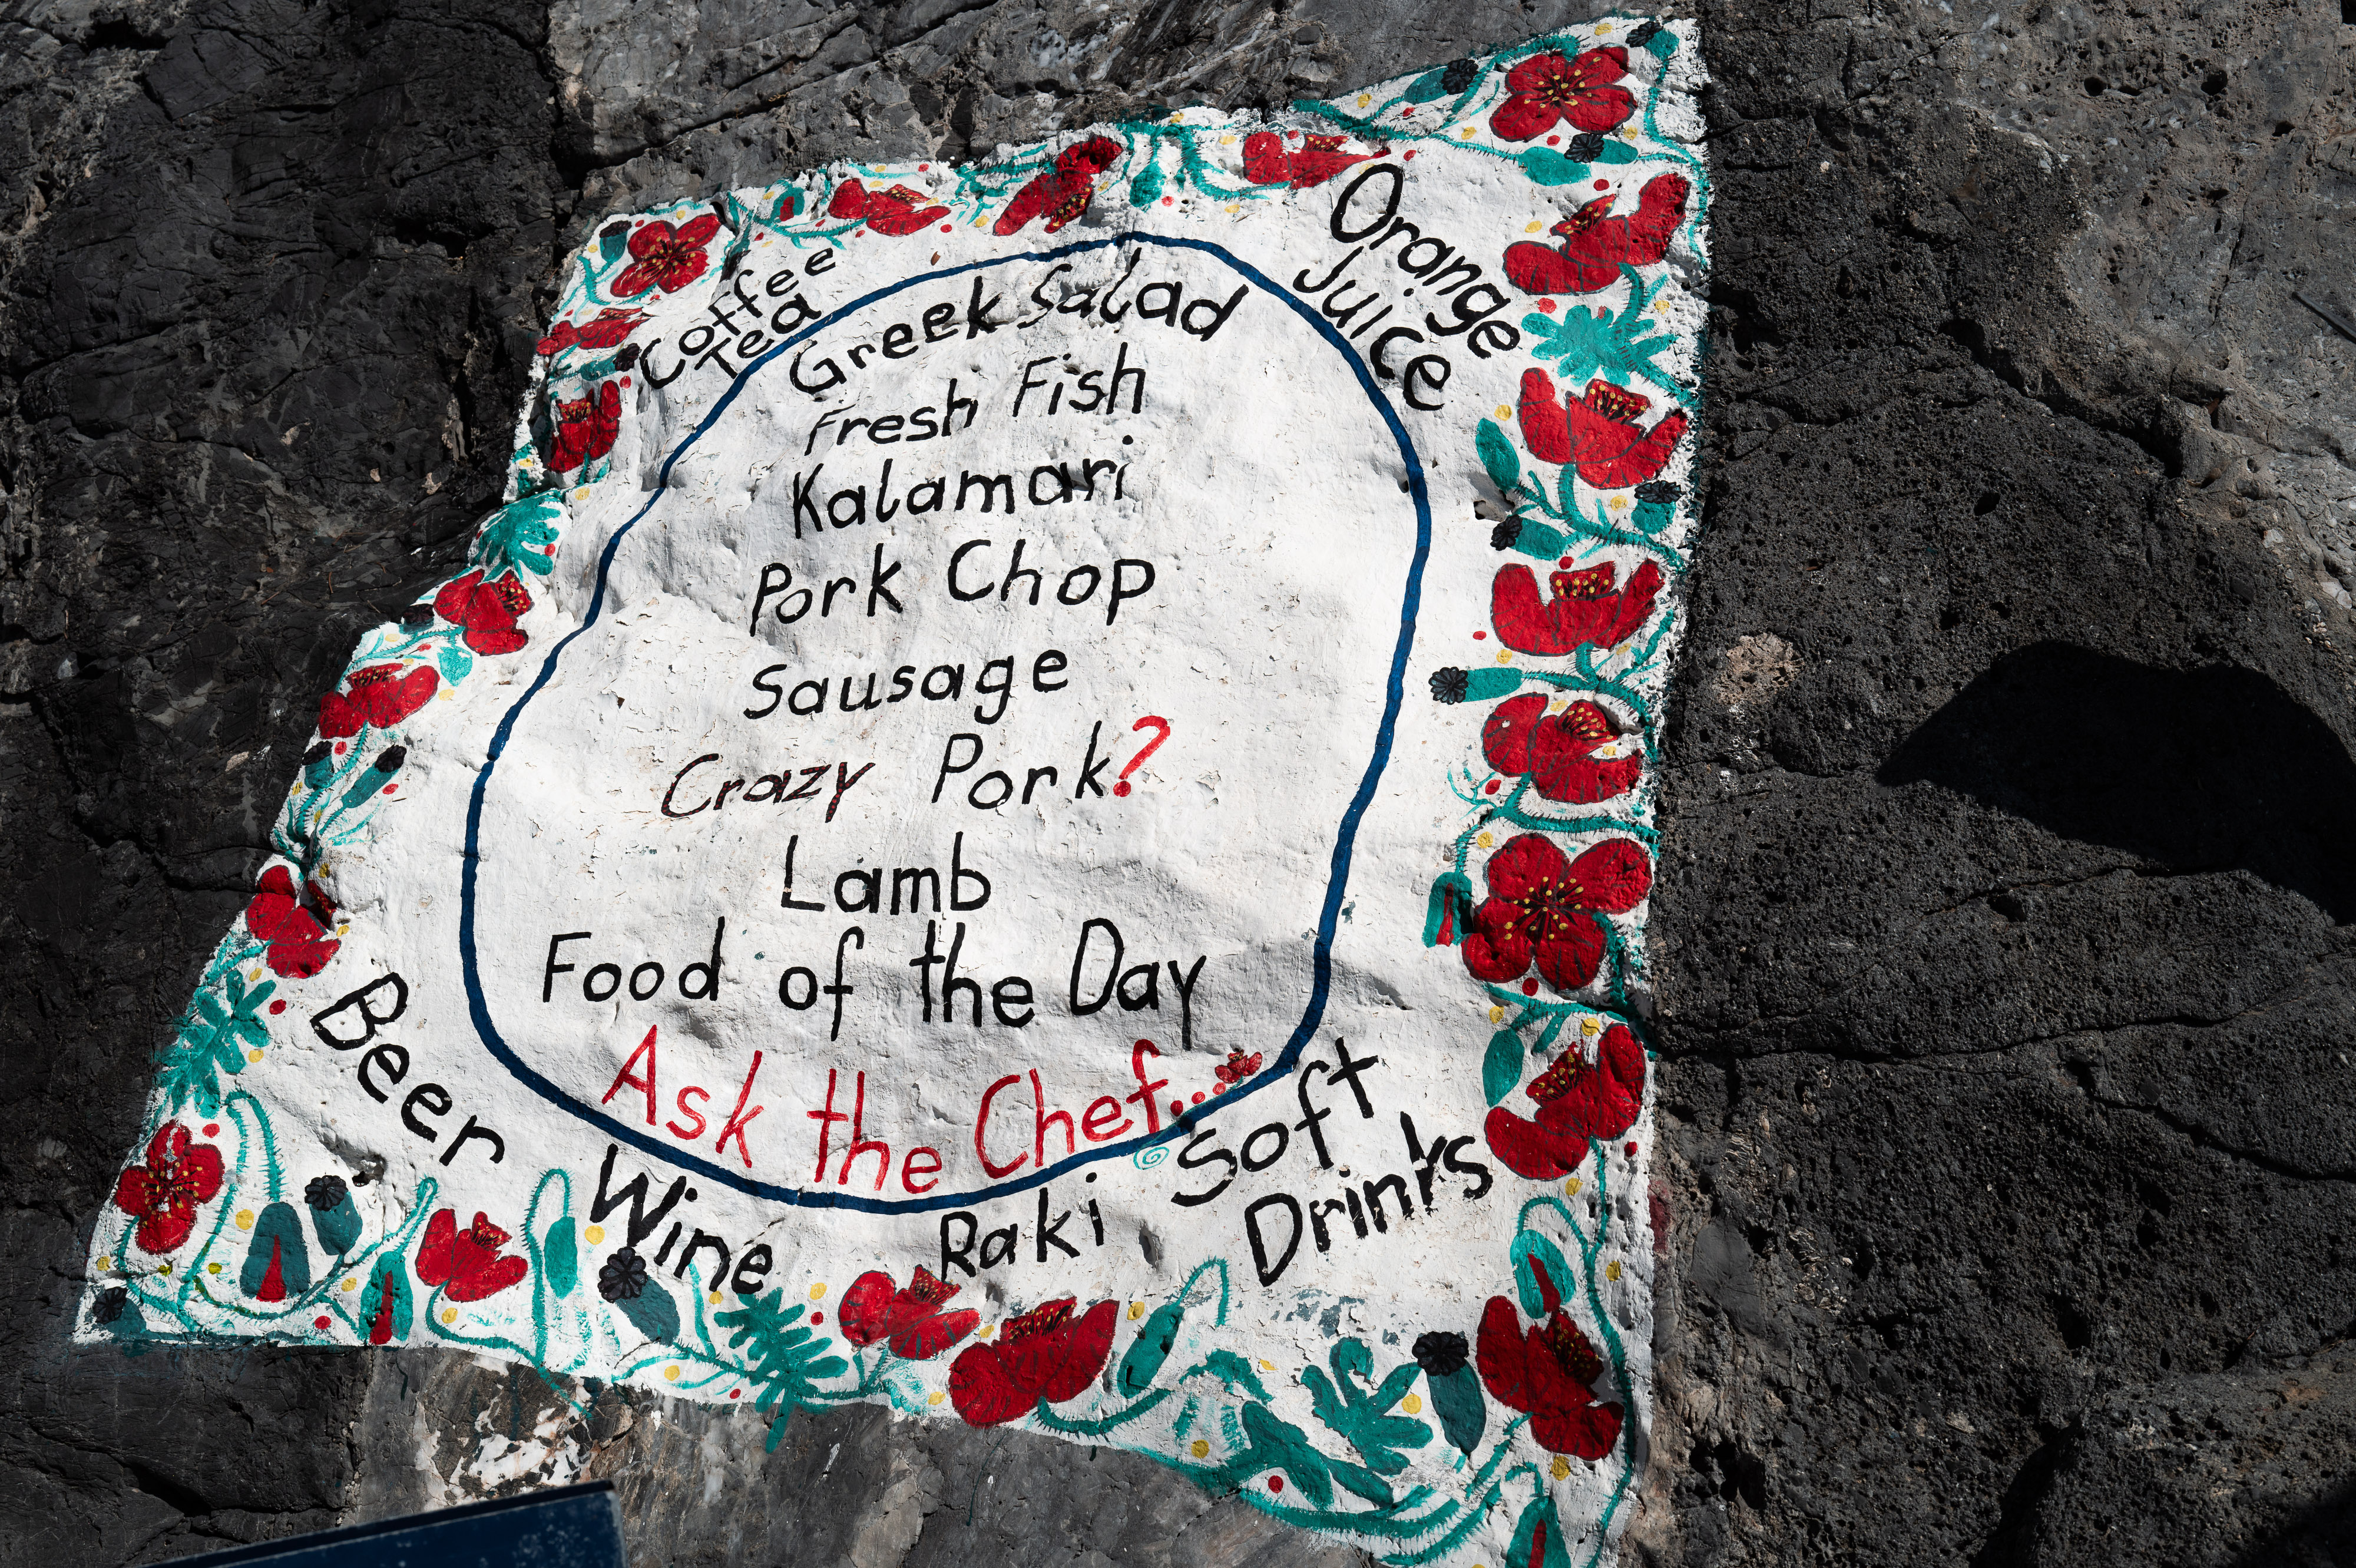 Coffee
Tea
Orange
Juice
Greek Salad
Fresh Fish
Kalamari
Pork Chop
Sausage
Crazy Pork?
Lamb
Food of the Day
Ask the Chef...
Beer
Wine
Raki
Soft
Drinks